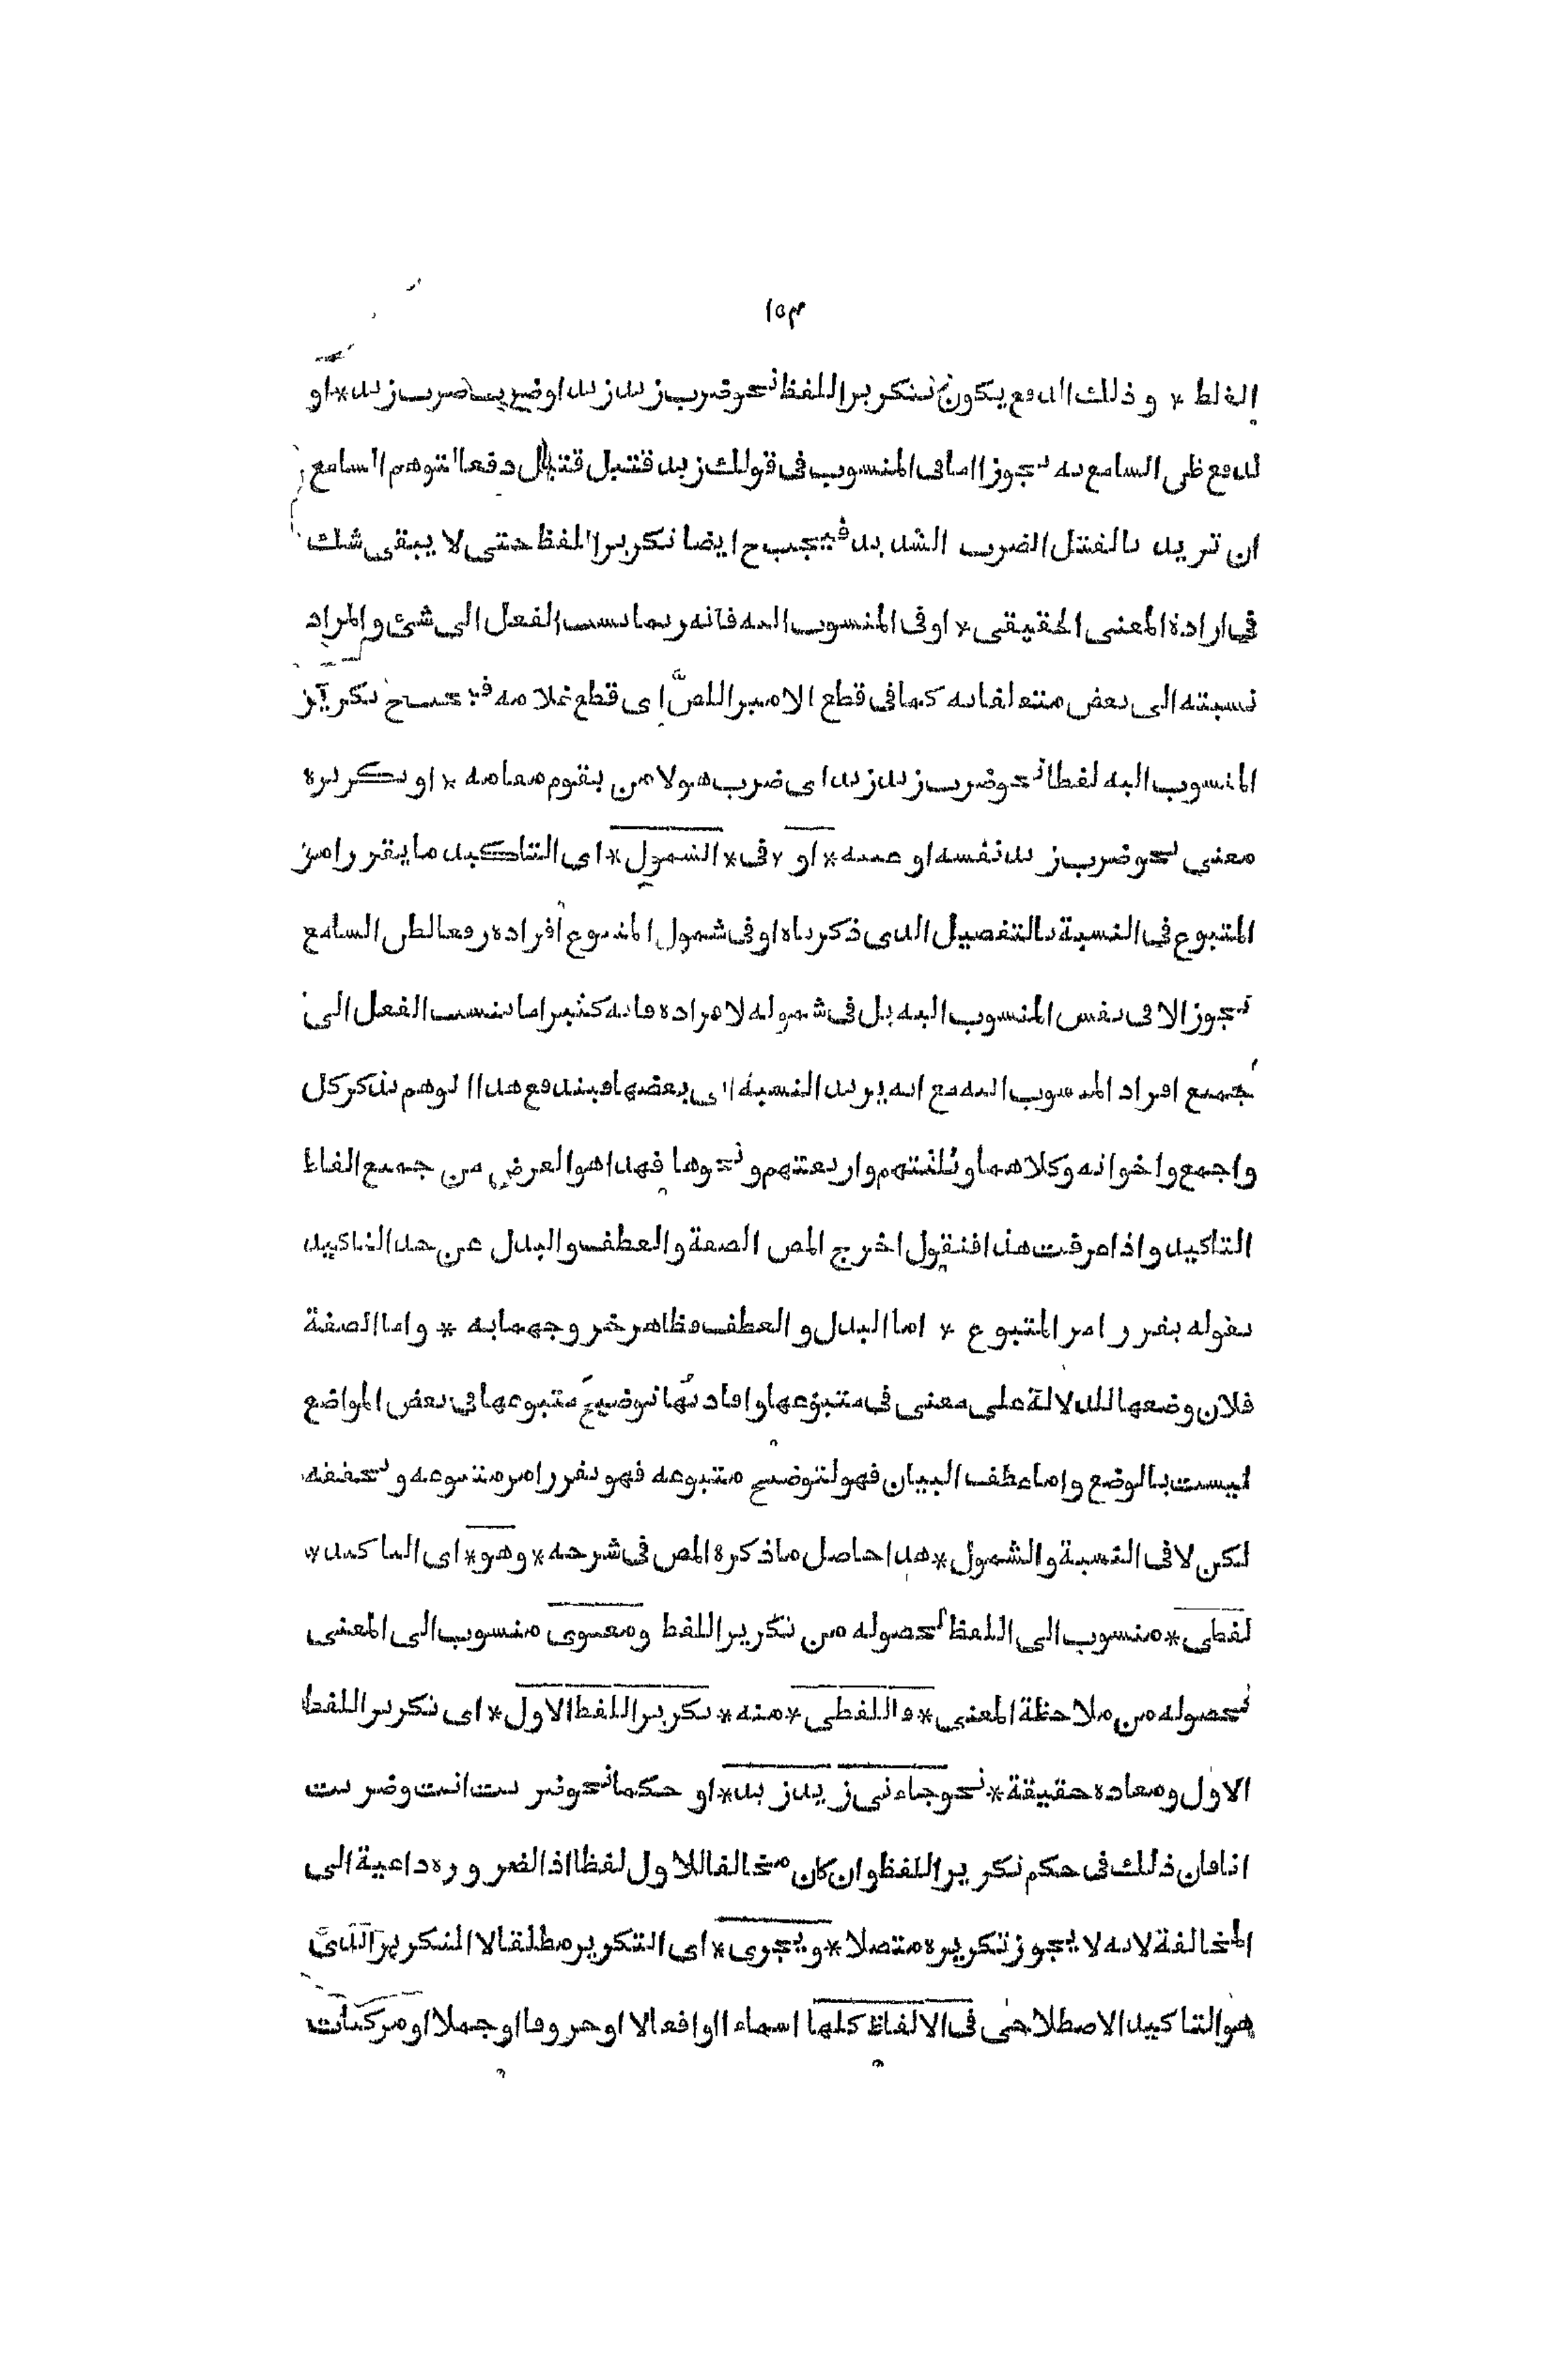 ١٥٣
الغلط * و ذلك الدفع يكون بتكرير اللفظ نحو ضرب زيد زيد او ضرب ضرب زيد * او
لدفع ظن السامع به تجوزا اما في المنسوب في قولك زيد قتيل قتيل دفعا لتوهم السامع
ان تريد بالقتل الضرب الشديد فيجب ح ايضا تكرير اللفظ حتى لا يبقى شك
في ارادة المعنى الحقيقي * او في المنسوب اليه فانه ربما نسب الفعل الى شئ و المراد
نسبته الى بعض متعلقاته كما في قطع الامير اللص اي قطع غلامه فيجب ح تكرير
المنسوب اليه لفظا نحو ضرب زيد زيد اي ضرب هو لا من يقوم مقامه * او تكريره
معنى نحو ضرب زيد نفسه او عينه * او * في * الشمول * اي التاكيد ما يقرر امر
المتبوع في النسبة بالتفصيل الذي ذكرناه او في شمول المتبوع افراده رفعا لظن السامع
تجوزا لا في نفس المنسوب اليه بل في شموله لافراده فانه كثيرا ما ينسب الفعل الى
جميع افراد المنسوب اليه مع انه يريد النسبة الى بعضها فيندفع هذا الوهم بذكر كل
و اجمع و اخواته و كلاهما و ثلثتهم و اربعتهم و نحوها فهذا هو الغرض من جميع الفاظ
التاكيد و اذا عرفت هذا فنقول اخرج المص الصفة و العطف و البدل عن حد التاكيد
بقوله يقرر امر المتبوع * اما البدل و العطف فظاهر خروجهما به * و اما الصفة
فلان وضعها للدلالة على معنى في متبوعها و افادتها توضيح متبوعها في بعض المواضع
ليست بالوضع و اما عطف البيان فهو لتوضيح متبوعه فهو يقرر امر متبوعه و تحققه
لكن لا في النسبة و الشمول * هذا حاصل ما ذكره المص في شرحه * و هو * اي التاكيد *
لفظي * منسوب الى اللفظ لحصوله من تكرير اللفظ و معنوي منسوب الى المعنى
لحصوله من ملاحظة المعنى * فاللفظي * منه * تكرير اللفظ الاول * اي تكرير اللفظ
الاول و معاده حقيقة * نحو جاءني زيد زيد * او حكما نحو ضربت انت و ضربت
انا فان ذلك في حكم تكرير اللفظ و ان كان مخالفا للاول لفظا اذ الضرورة داعية الى
المخالفة لانه لا يجوز تكريره متصلا * و يجري * اي التكرير مطلقا لا التكرير الذي
هو التاكيد الاصطلاحي في الالفاظ كلها اسماء او افعالا او حروفا او جملا او مركبات